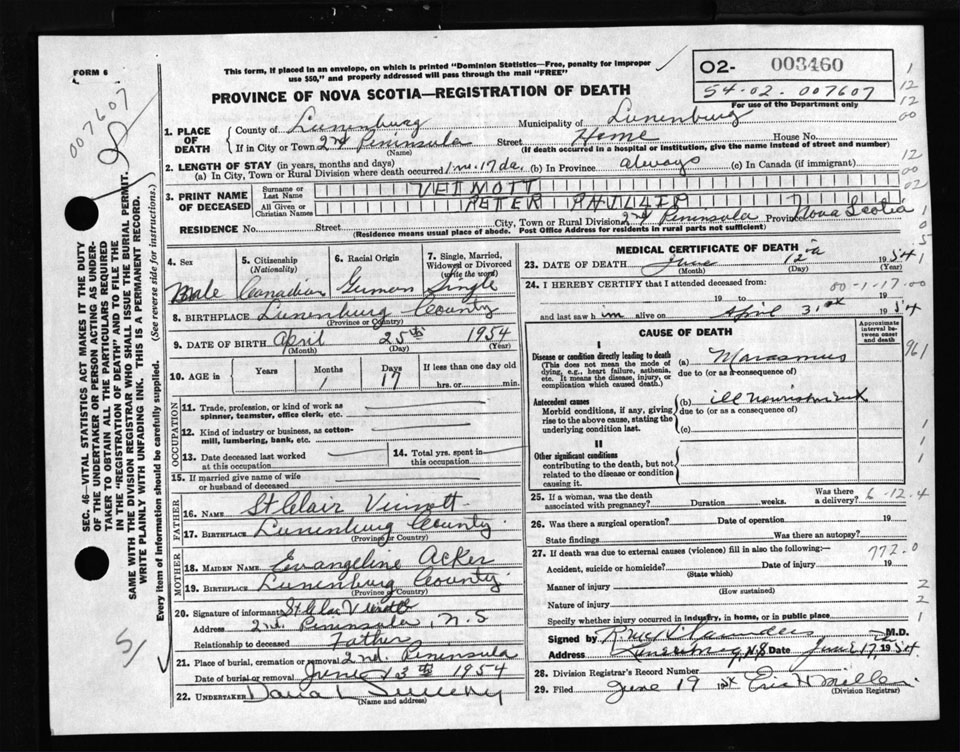 FORM 6
This form, if placed in an envelope, on which is printed "Dominion Statistics—Free, penalty for improper
use $50," and properly addressed will pass through the mail "FREE"
02- 003460
54-02-007607
For use of the Department only
007607
PROVINCE OF NOVA SCOTIA—REGISTRATION OF DEATH
1. PLACE OF DEATH
County of Lunenburg Municipality of Lunenburg
If in City or Town 2nd Peninsula Street Home House No.
(Name) (If death occurred in a hospital or institution, give the name instead of street and number)
2. LENGTH OF STAY (in years, months and days)
(a) In City, Town or Rural Division where death occurred 1 mo. 17 da. (b) In Province always (c) In Canada (if immigrant)
3. PRINT NAME OF DECEASED
Surname or Last Name VEINOTT
All Given or Christian Names PETER PHILLIP
RESIDENCE No. Street City, Town or Rural Division 2nd Peninsula Province Nova Scotia
(Residence means usual place of abode. Post Office Address for residents in rural parts not sufficient)
4. Sex
Male
5. Citizenship
(Nationality)
Canadian
6. Racial Origin
German
7. Single, Married,
Widowed or Divorced
(write the word)
Single
8. BIRTHPLACE Lunenburg County
(Province or Country)
9. DATE OF BIRTH April 25th 1954
(Month) (Day) (Year)
10. AGE in Years Months 1 Days 17 If less than one day old
hrs. or min.
OCCUPATION
11. Trade, profession, or kind of work as
spinner, teamster, office clerk, etc.
12. Kind of industry or business, as cotton-
mill, lumbering, bank, etc.
13. Date deceased last worked
at this occupation
14. Total yrs. spent in
this occupation
15. If married give name of wife
or husband of deceased
FATHER
16. Name St Clair Veinott
17. Birthplace Lunenburg County
(Province or Country)
MOTHER
18. Maiden Name Evangeline Acker
19. Birthplace Lunenburg County
(Province or Country)
20. Signature of informant St Clair Veinott
Address 2nd Peninsula, N.S
Relationship to deceased Father
21. Place of burial, cremation or removal 2nd. Peninsula
Date of burial or removal June 13th 1954
22. UNDERTAKER
(Name and address)
MEDICAL CERTIFICATE OF DEATH
23. DATE OF DEATH June 12th 1954
(Month) (Day) (Year)
24. I HEREBY CERTIFY that I attended deceased from:
00-1-17-00
19 to 19
and last saw him alive on April 31st 1954
CAUSE OF DEATH
Approximate
interval be-
tween onset
and death
I
Disease or condition directly leading to death
(This does not mean the mode of
dying, e.g., heart failure, asthenia,
etc. It means the disease, injury, or
complication which caused death.)
(a) Marasmus
due to (or as a consequence of)
Antecedent causes
Morbid conditions, if any, giving
rise to the above cause, stating the
underlying condition last.
(b) ill nourishment
due to (or as a consequence of)
(c)
II
Other significant conditions
contributing to the death, but not
related to the disease or condition
causing it.
25. If a woman, was the death
associated with pregnancy? Duration weeks. Was there
a delivery? 6-12-4
26. Was there a surgical operation? Date of operation 19
State findings Was there an autopsy?
27. If death was due to external causes (violence) fill in also the following:— 772.0
Accident, suicide or homicide? Date of injury 19
(State which)
Manner of injury
(How sustained)
Nature of injury
Specify whether injury occurred in industry, in home, or in public place
Signed by Saunders M.D.
Address Lunenburg, N.S Date June 17, 1954
28. Division Registrar's Record Number
29. Filed June 19 1954 Eric H Miller
(Division Registrar)
SEC. 46—VITAL STATISTICS ACT MAKES IT THE DUTY
OF THE UNDERTAKER OR PERSON ACTING AS UNDER-
TAKER TO OBTAIN ALL THE PARTICULARS REQUIRED
IN THE "REGISTRATION OF DEATH" AND TO FILE THE
SAME WITH THE DIVISION REGISTRAR WHO SHALL ISSUE THE BURIAL PERMIT.
WRITE PLAINLY WITH UNFADING INK. THIS IS A PERMANENT RECORD.
Every item of information should be carefully supplied. (See reverse side for instructions.)